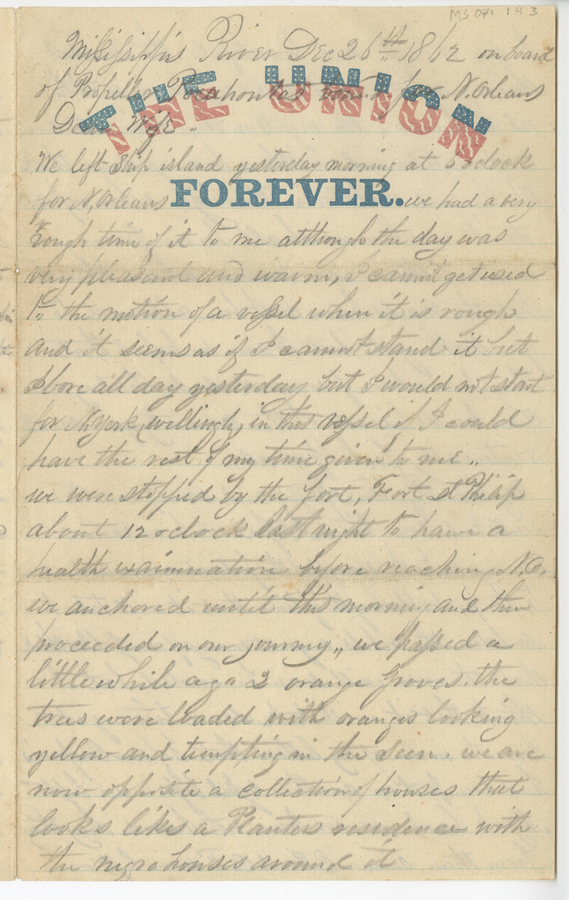 MS 071 1 4 3
Missisippi River Dec 26th 1862 on board
of Propeller Pocahontas bound for N. Orleans
THE UNION
Dear
We left Ship island yesterday morning at oclock
for N, Orleans
FOREVER.
we had a very
rough time of it to me although the day was
very pleasant and warm, I cannot get used
to the motion of a vessel when it is rough
and it seems as if I cannot stand it but
I bore all day yesterday but I would not start
for N York (willingly) in this vessel if I could
have the rest of my time given to me „
we were stopped by the fort, Fort St Philip
about 12 oclock last night to have a
health examination before reaching N.O.
we anchored until this morning and then
proceeded on our journey „ we passed a
little while ago 2 orange groves. the
trees were loaded with oranges looking
yellow and tempting in the sun. we are
now opposite a collection of houses that
looks likes a Planters residence with
the negro houses around it